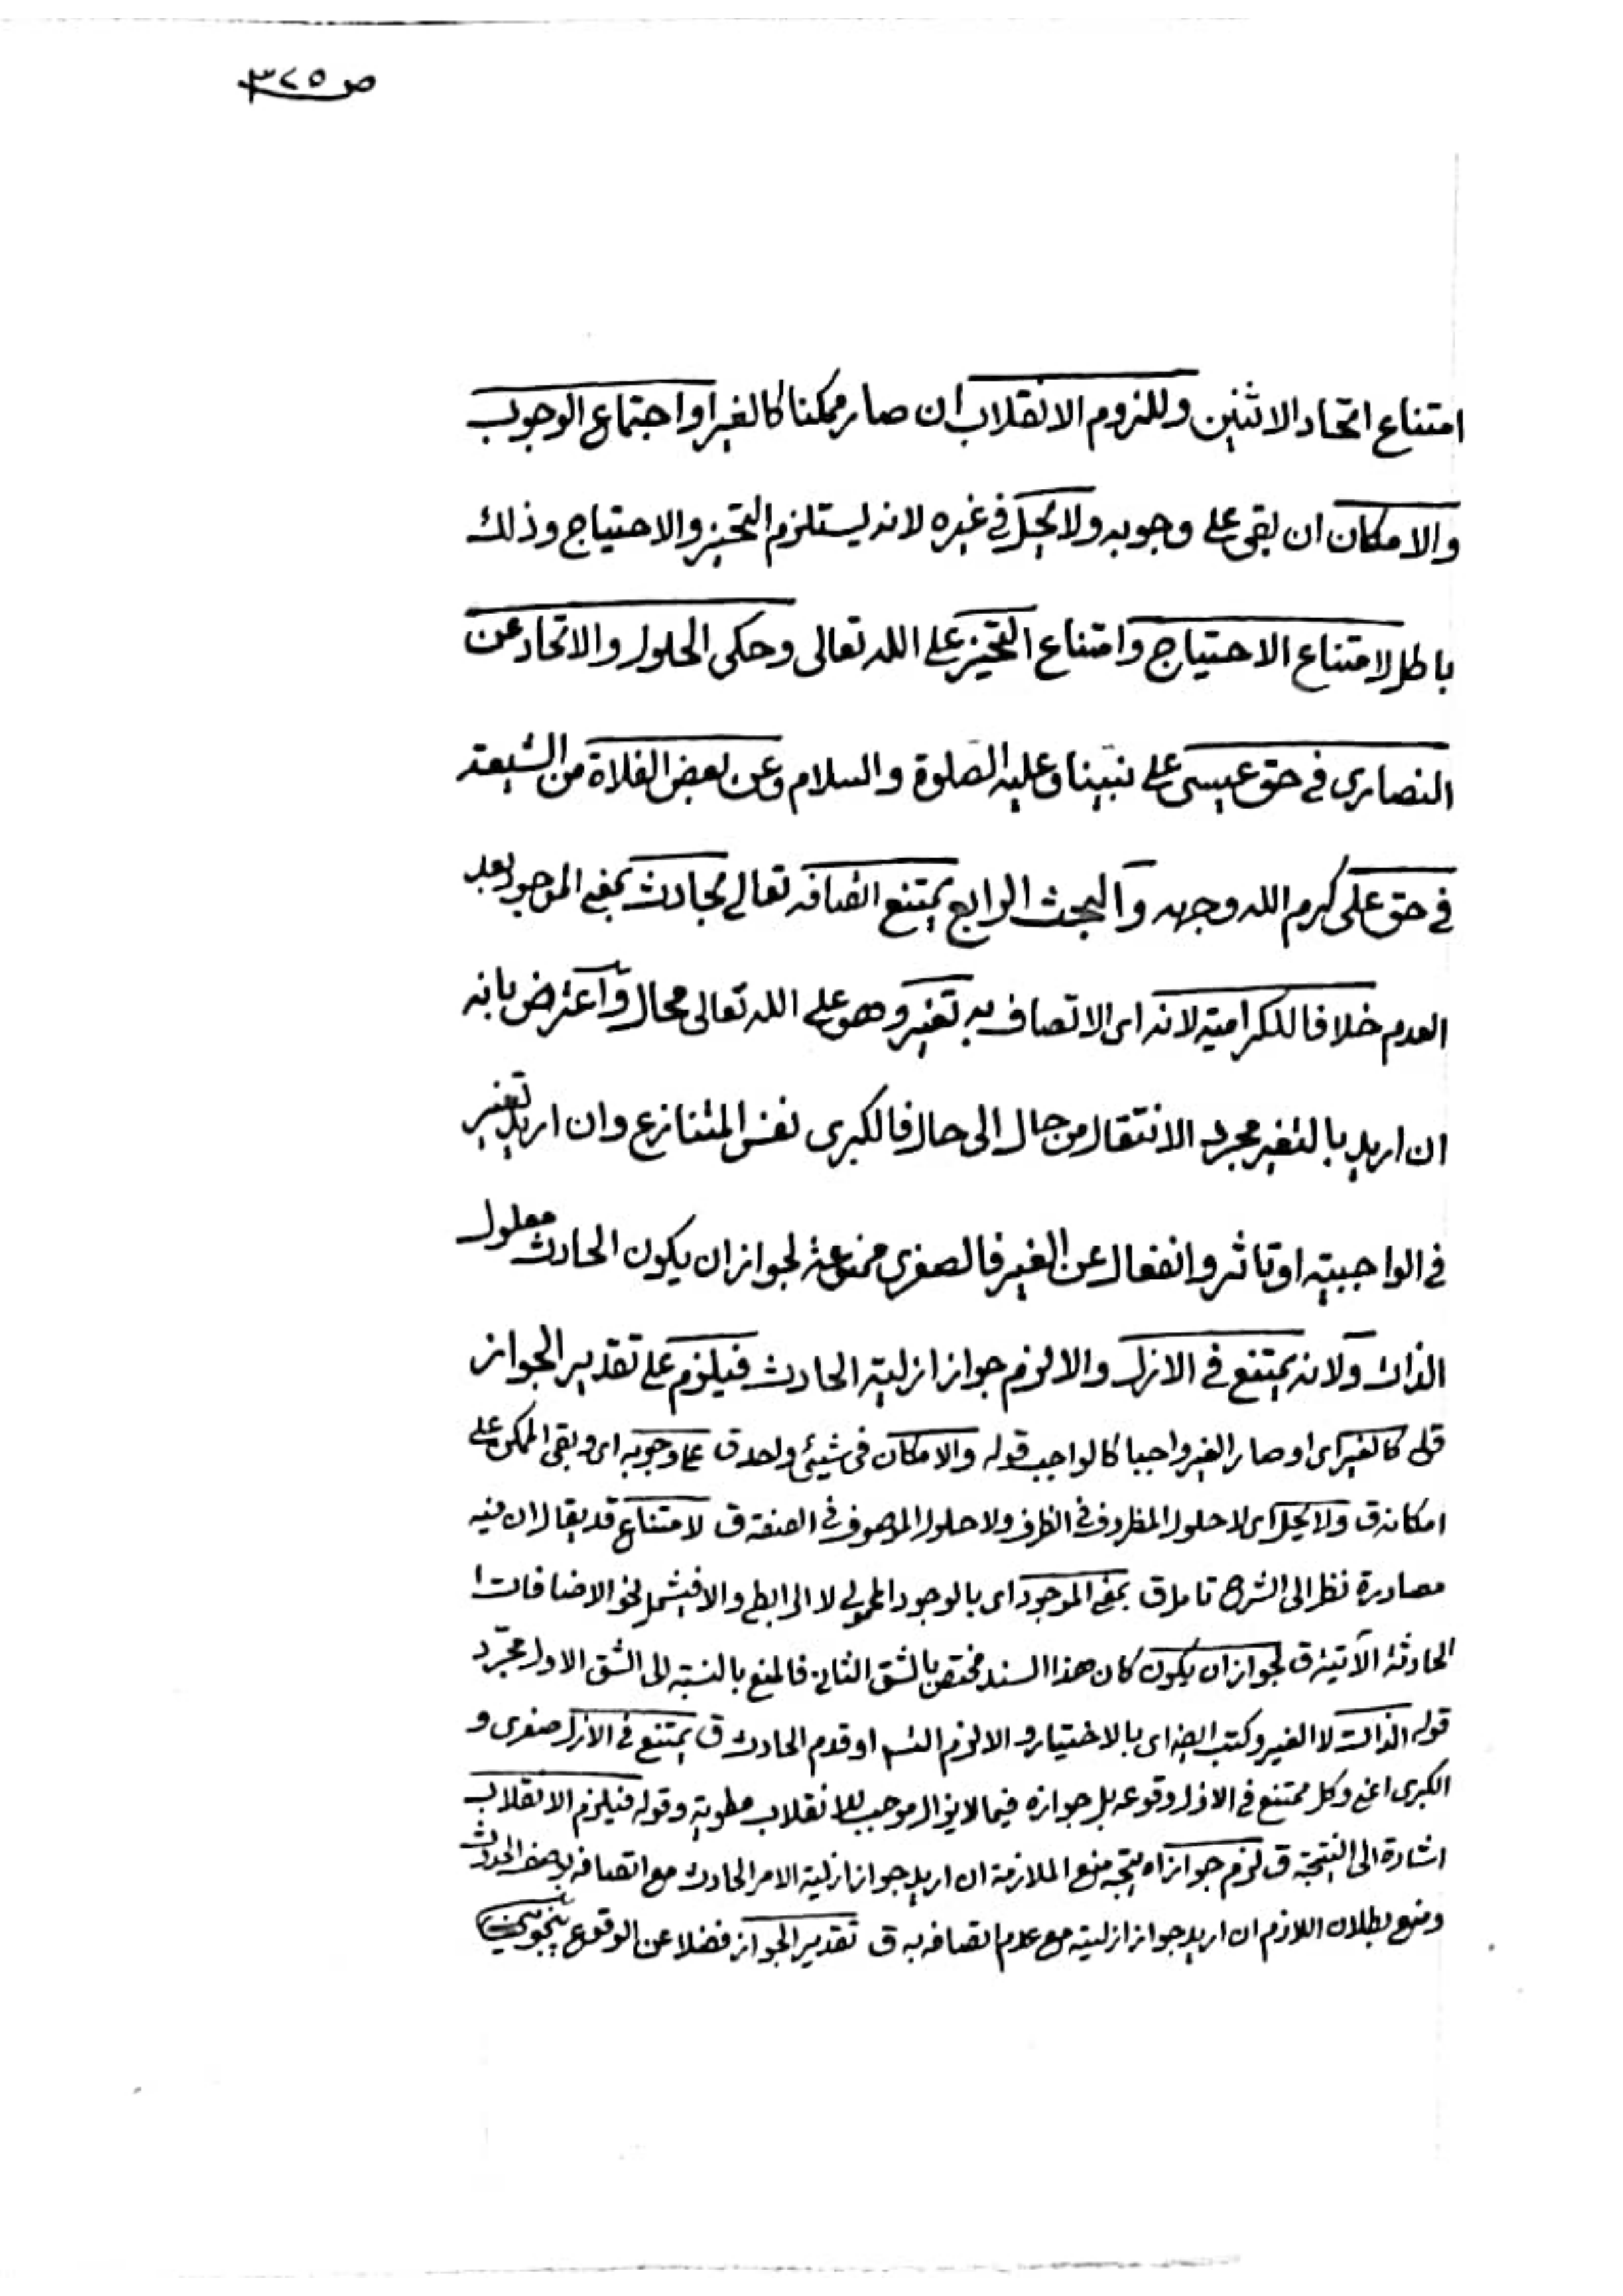 ص ٣٢٥
امتناع اتحاد الاثنين وللزوم الانقلاب ان صار ممكنا كالغير او اجتماع الوجوب
والامكان ان بقى على وجوبه ولا يحل في غيره لانه يستلزم التحيز والاحتياج وذلك
باطل لامتناع الاحتياج وامتناع التحيز على الله تعالى وحكى الحلول والاتحاد عن
النصارى في حق عيسى على نبينا وعليه الصلوة والسلام وعن بعض الغلاة من الشيعة
في حق على كرم الله وجهه والبحث الرابع يمتنع اتصافه تعالى بحادث بمعنى الموجود بعد
العدم خلافا للكرامية لانه اى الاتصاف به تغير وهو على الله تعالى محال واعترض بانه
ان اريد بالتغير مجرد الانتقال من حال الى حال فالكبرى نفس المتنازع وان اريد تغير
في الواجبية او تاثر وانفعال عن الغير فالصغرى ممنوعة لجواز ان يكون الحادث معلول
الذات ولانه يمتنع في الازل والا لزم جواز ازلية الحادث فيلزم على تقدير الجواز
قوله كالغير اى او صار الغير واجبا كالواجب قوله والامكان في شيئ واحد ق على وجوبه اى وبقى الممكن على
امكانه ق ولا يحل اى لا حلول المظروف في الظرف ولا حلول الموصوف في الصفة ق لامتناع قد يقال ان فيه
مصادرة نظر الى الشرح تامل ق بمعنى الموجود اى بالوجود المحمولي لا الرابطي والا فيشمل نحو الاضافات
الحادثة الآتية ق لجواز ان يكون كان هذا السند مختص بالشق الثاني فالمنع بالنسبة الى الشق الاول مجرد
قوله الذات لا الغير وكتب ايضا اى بالاختيار والا لزم التس او قدم الحادث ق يمتنع في الازل صغرى و
الكبرى اعني وكل ممتنع في الازل وقوعه بل جوازه فيما لا يزال موجب للانقلاب مطوية وقوله فيلزم الانقلاب
اشارة الى النتيجة ق لزم جواز اه يتجه منع الملازمة ان اريد جواز ازلية الامر الحادث مع اتصافه بوصف الحدوث
ومنع بطلان اللازم ان اريد جواز ازليته مع عدم اتصافه به ق تقدير الجواز فضلا عن الوقوع